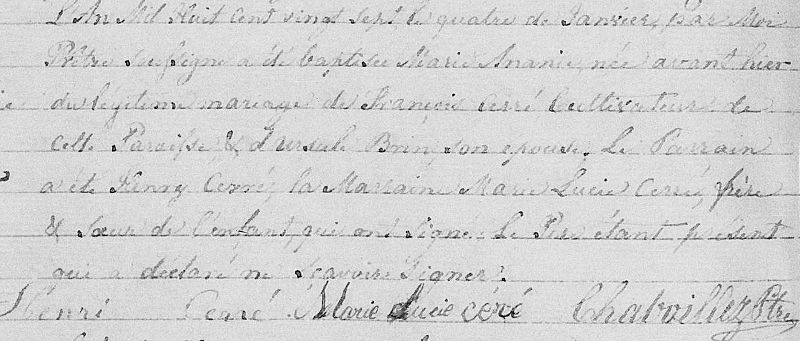 L'An Mil Huit cent vingt sept, le quatre de Janvier, par Moi
Prêtre Soussigné a été baptisée Marie Ananie, née avant hier
du légitime mariage de François Cerré Cultivateur de
cette Paroisse & d'Ursule Brin, son epouse. Le Parrain
a été Henry Cerré, la Marraine Marie Lucie Cerré, frère
& sœur de l'enfant, qui ont signé. Le Père étant présent
qui a déclaré ne Scavoire Signer.
Henri Cerré Marie Lucie ceré Chatvillez Ptre